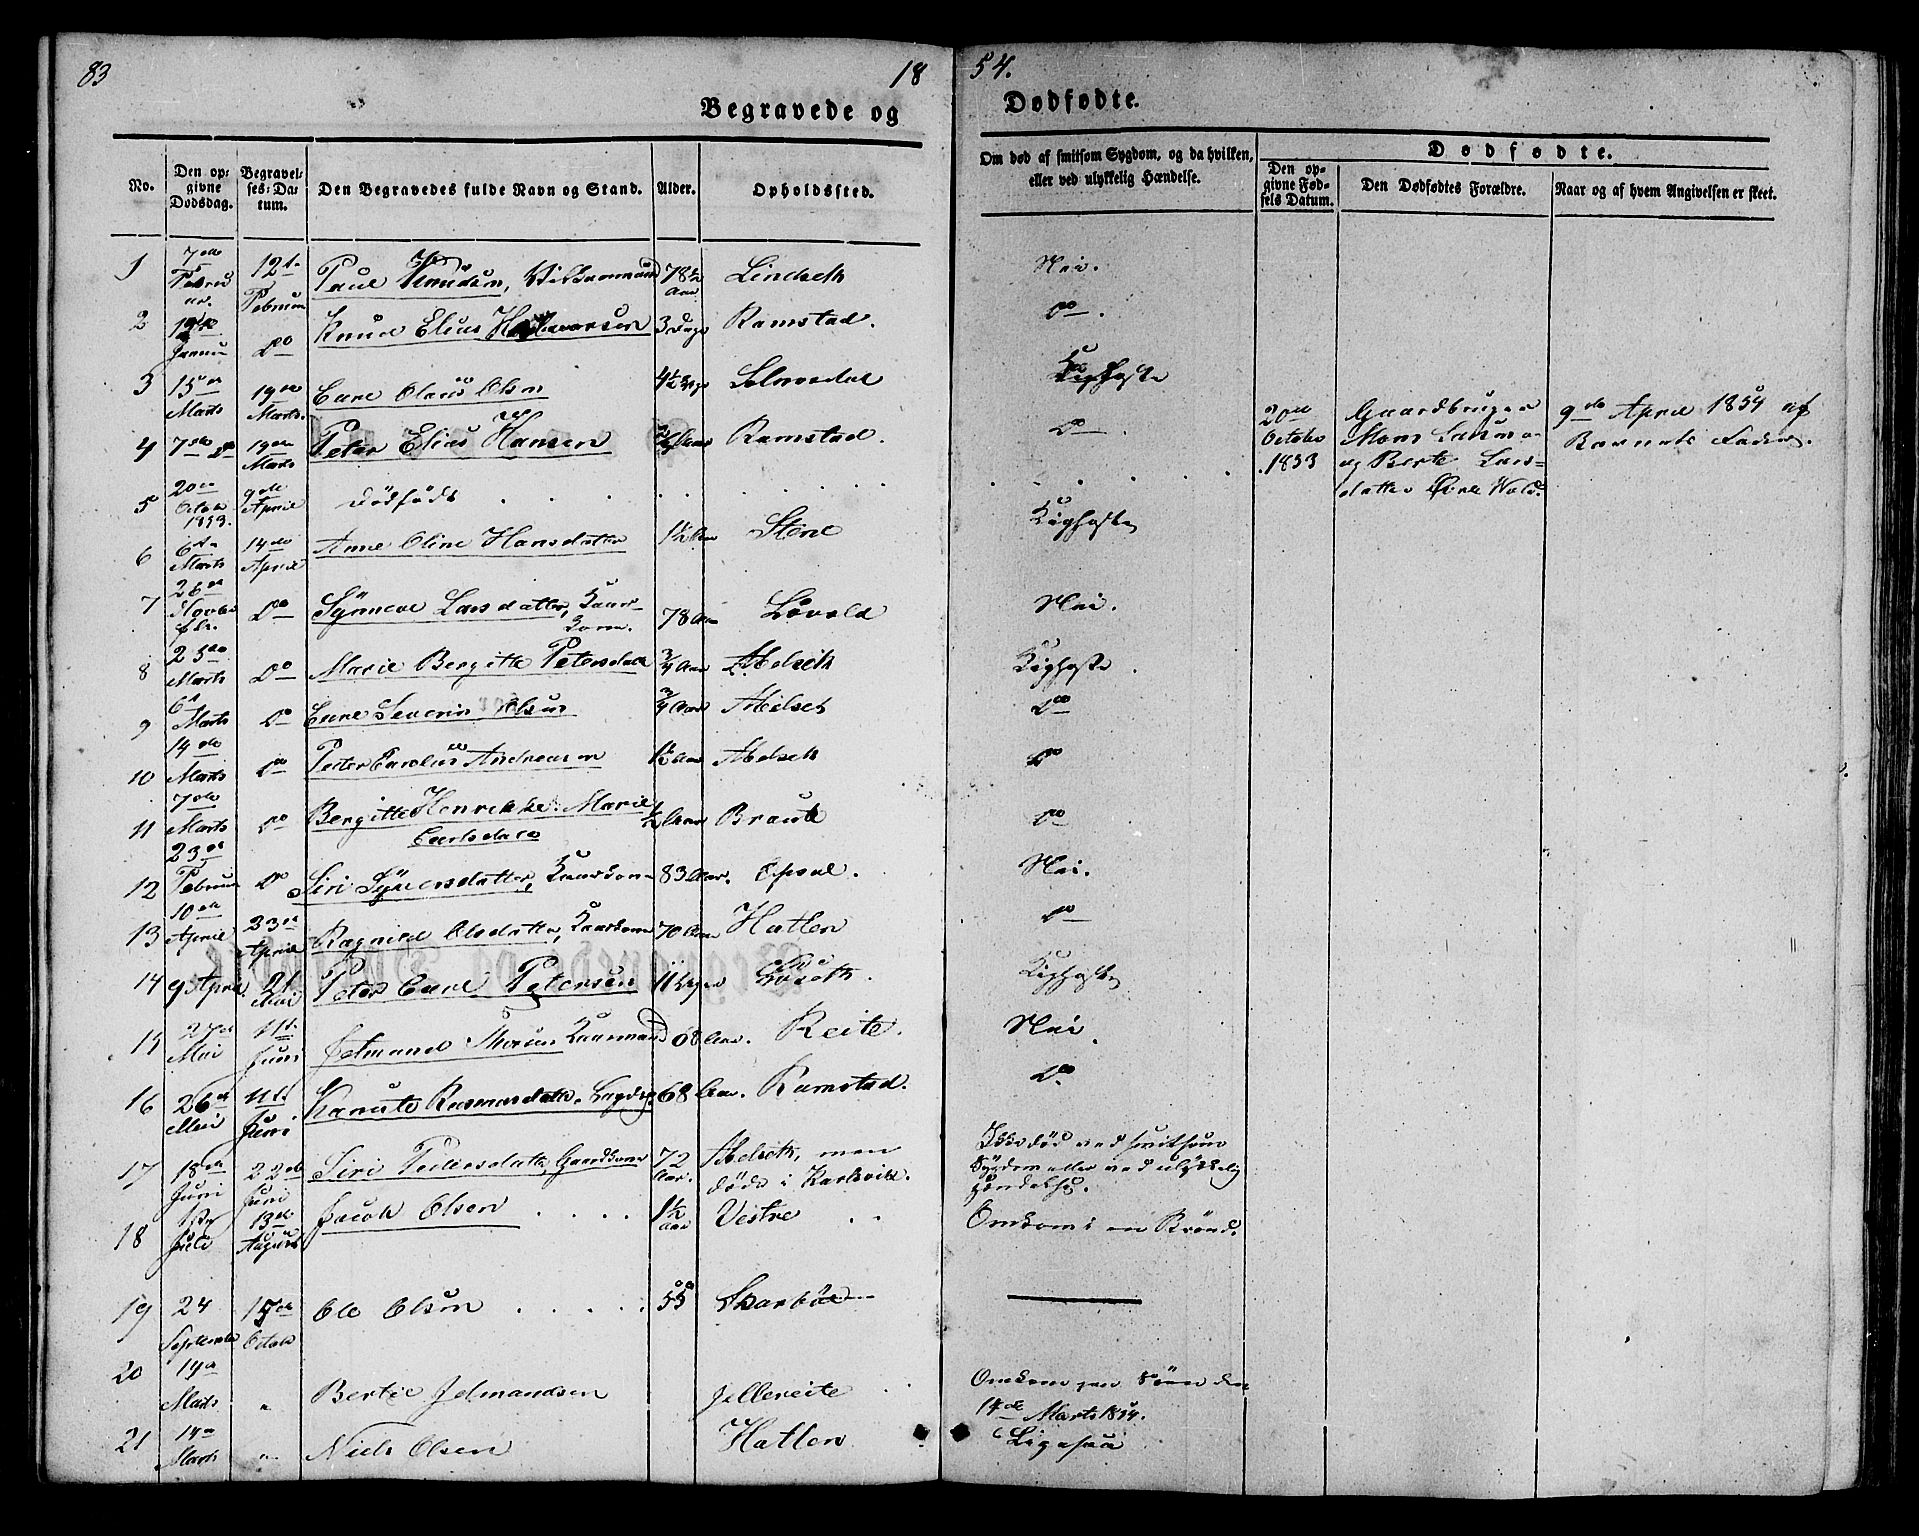 83
18
54.
Begravede og
Dødfødte.
No.
Den opgivne Dødsdag.
Begravelses-Datum.
Den Begravedes fulde Navn og Stand.
Alder.
Opholdssted.
Om død af smitsom Sygdom, og da hvilken,
eller ved ulykkelig Hændelse.
Dødfødte.
Den opgivne Fødsels Datum.
Den Dødfødtes Forældre.
Naar og af hvem Angivelsen er skeet.
1 7de Februar. 12te Februar Paul Knudsen, 78½ Aar Lindseth Nei.
2 Januar Do Knud Elias 3 Dage Ramstad. Do.
3 15de Marts 19de Marts. Carl Olaus Olsen 4½ Solnørdal Kighoste
4 7de Do 19de Marts Peter Elias Hansen Aar Ramstad. Do.
5 20de Octobr 1853. 9de April Dødfødt
20de October 1853
Gaardbruger
Mons Lasse
og Berte Lars-
datter Øvre Wold.
9de April 1854 af
Barnets Fader.
6 6te Marts 14de April Anne Oline Hansdatter 1½ Aar Stene Kighoste
7 26de Novbr Do Synneve Larsdatter, Kaarkone. 78 Aar Løvold Nei.
8 25de Marts Do Marie Bergitte Petersdatr ¾ Aar Abelseth Kighoste.
9 6te Marts Do Carl Severin Olsen ¾ Aar Abelset Do
10 14de Marts Do Peter Carolus Andreassen 1½ Aar Abelseth Do
11 7de Marts Do Bergitte Henrikke Marie
Carlsdatr ½ Aar Braute Do
12 23de Februar Do Siri Syversdatter, Kaarkone 83 Aar. Opsal. Nei.
13 10de April 23de April Ragnild Olsdatter, Kaarkone 70 Aar Hatlen Do
14 9 April. 21 Mai Peter Carl Petersen 11 Uger Kighoste
15 27de Mai 11te Juni Jetmund Kaarmand 68 Aar. Reite. Nei.
16 26de Mai 11te Juni Kanute Rasmusdatr. 68 Aar. Ramstad. Do
17 18de Juni 22de Juni Siri Pedersdatter, Gaardkone 72 Aar. Abelseth, men
døde i Karlsvik. Ikke død ved smitsom
Sygdom eller ved ulykkelig
Hændelse.
18 Juli 13de August Jacob Olsen 1½ Aar Vestre Omkom i en Brønd.
19 24 September 15de Octobr Ole Olsen 55 Skarbøe
20 14de Marts " Bertie Jetmundsen Jellereite Omkom paa Søen den
14de Marts 1854.
21 14de Marts " Niels Olsen Hatlen Ligesaa